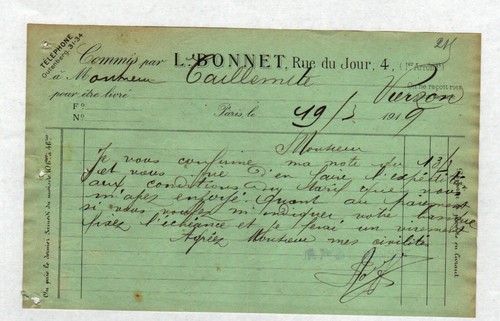 211
TÉLÉPHONE
Gutenberg 31-34
Commis par L. BONNET, Rue du Jour, 4, (1er Arrondt)
à Monsieur Taillemite Vierzon
pour être livré
On ne reçoit rien
F°
N°
Paris, le 19/3 1919
Monsieur
Je vous confirme ma note du 13/
et vous prie d'en faire l'expédition
aux conditions du tarif que vous
m'avez envoyé. Quant au paiement
si vous voulez m'indiquer votre banque
fixez l'échéance et je ferai un virement
Agréez Monsieur mes civilités